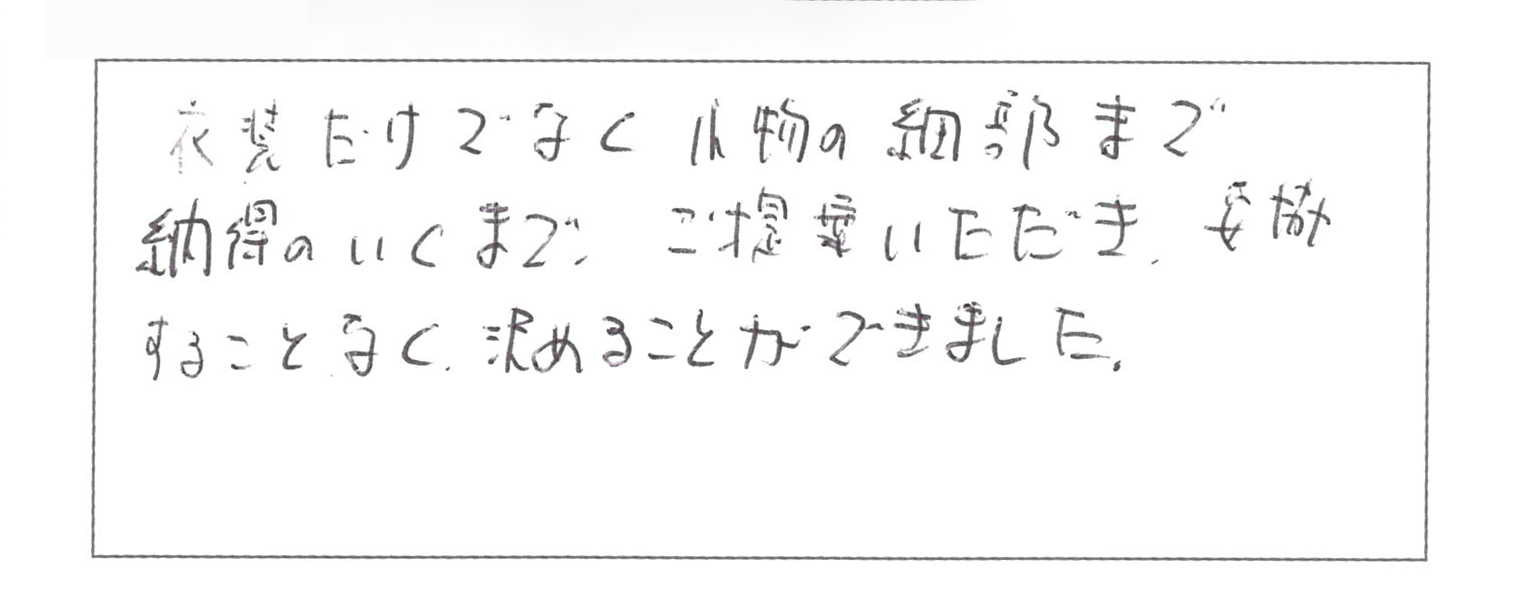 衣装だけでなく小物の細部まで
納得のいくまで、ご提案いただき、妥協
することなく、決めることができました。